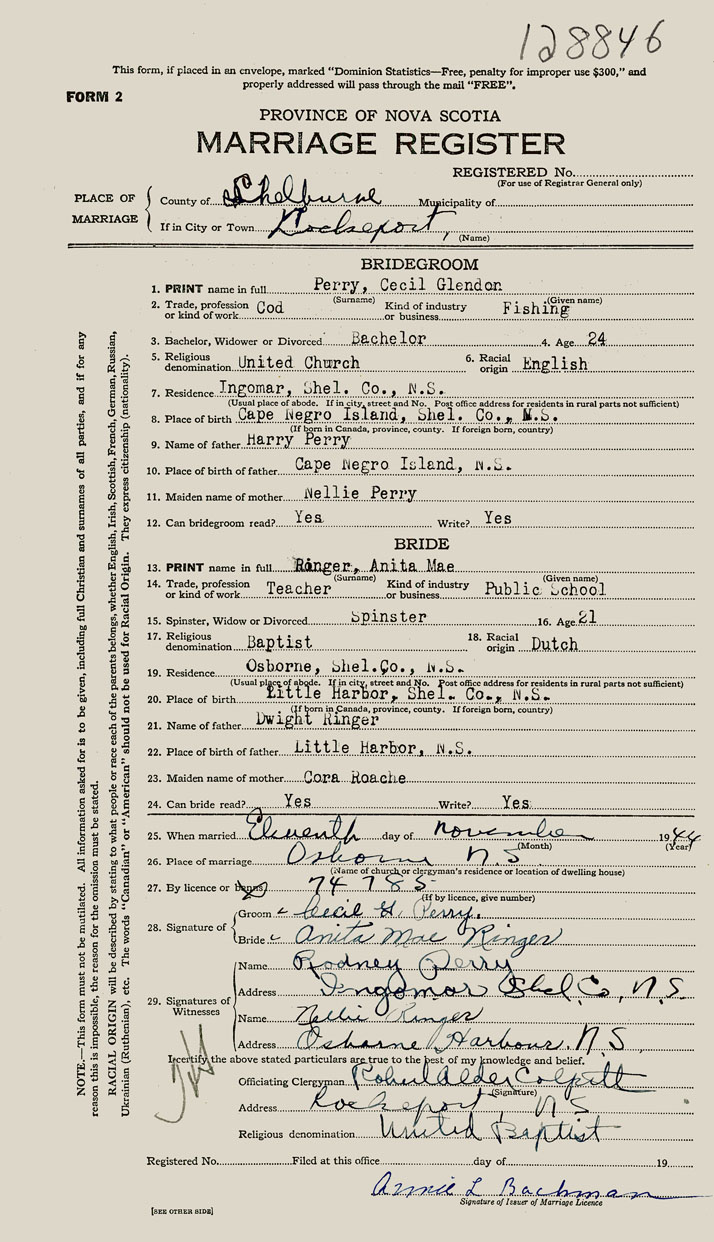 128846
This form, if placed in an envelope, marked “Dominion Statistics—Free, penalty for improper use $300,” and
properly addressed will pass through the mail “FREE”.
FORM 2
PROVINCE OF NOVA SCOTIA
MARRIAGE REGISTER
REGISTERED No.
(For use of Registrar General only)
PLACE OF MARRIAGE
County of Shelburne Municipality of
If in City or Town Lockeport,
(Name)
BRIDEGROOM
1. PRINT name in full Perry, Cecil Glendon
(Surname) (Given name)
2. Trade, profession or kind of work Cod Kind of industry or business Fishing
3. Bachelor, Widower or Divorced Bachelor 4. Age 24
5. Religious denomination United Church 6. Racial origin English
7. Residence Ingomar, Shel. Co., N.S.
(Usual place of abode. If in city, street and No. Post office address for residents in rural parts not sufficient)
8. Place of birth Cape Negro Island, Shel. Co., N.S.
(If born in Canada, province, county. If foreign born, country)
9. Name of father Harry Perry
10. Place of birth of father Cape Negro Island, N.S.
11. Maiden name of mother Nellie Perry
12. Can bridegroom read? Yes Write? Yes
BRIDE
13. PRINT name in full Ringer, Anita Mae
(Surname) (Given name)
14. Trade, profession or kind of work Teacher Kind of industry or business Public School
15. Spinster, Widow or Divorced Spinster 16. Age 21
17. Religious denomination Baptist 18. Racial origin Dutch
19. Residence Osborne, Shel.Co., N.S.
(Usual place of abode. If in city, street and No. Post office address for residents in rural parts not sufficient)
20. Place of birth Little Harbor, Shel. Co., N.S.
(If born in Canada, province, county. If foreign born, country)
21. Name of father Dwight Ringer
22. Place of birth of father Little Harbor, N.S.
23. Maiden name of mother Cora Roache
24. Can bride read? Yes Write? Yes
25. When married Eleventh day of November 1944
(Month) (Year)
26. Place of marriage Osborne N.S.
(Name of church or clergyman's residence or location of dwelling house)
27. By licence or banns 74785
(If by licence, give number)
28. Signature of
Groom Cecil G. Perry.
Bride Anita Mae Ringer
29. Signatures of Witnesses
Name Rodney Perry
Address Ingomar Shel. Co, N.S.
Name Nellie Ringer
Address Osborne Harbour. N.S.
I certify the above stated particulars are true to the best of my knowledge and belief.
Officiating Clergyman Robert Alder Colpitt
(Signature)
Address Lockeport, N S
Religious denomination United Baptist
Registered No. Filed at this office day of 19
Annie L Bachman
Signature of Issuer of Marriage Licence
[SEE OTHER SIDE]
NOTE.—This form must not be mutilated. All information asked for is to be given, including full Christian and surnames of all parties, and if for any
reason this is impossible, the reason for the omission must be stated.
RACIAL ORIGIN will be described by stating to what people or race each of the parents belongs, whether English, Irish, Scottish, French, German, Russian,
Ukrainian (Ruthenian), etc. The words “Canadian” or “American” should not be used for Racial Origin. They express citizenship (nationality).